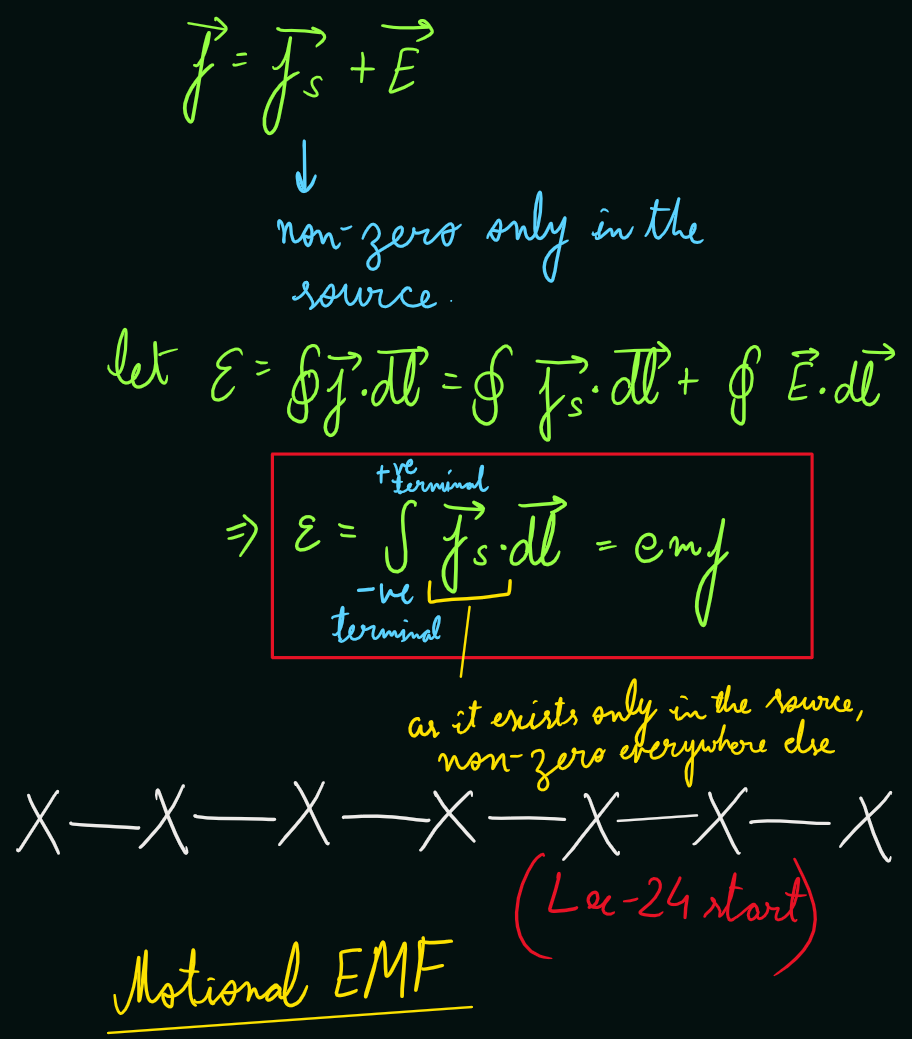 f⃗ = f⃗ₛ + E⃗
↓
non-zero only in the
source.
let ε = ∮ f⃗ · dl⃗ = ∮ f⃗ₛ · dl⃗ + ∮ E⃗ · dl⃗
⇒ ε = ∫_{-ve terminal}^{+ve terminal} f⃗ₛ · dl⃗ = emf
as it exists only in the source,
non-zero everywhere else
X—X—X—X—X—X—X
(Lec-24 start)
Motional EMF